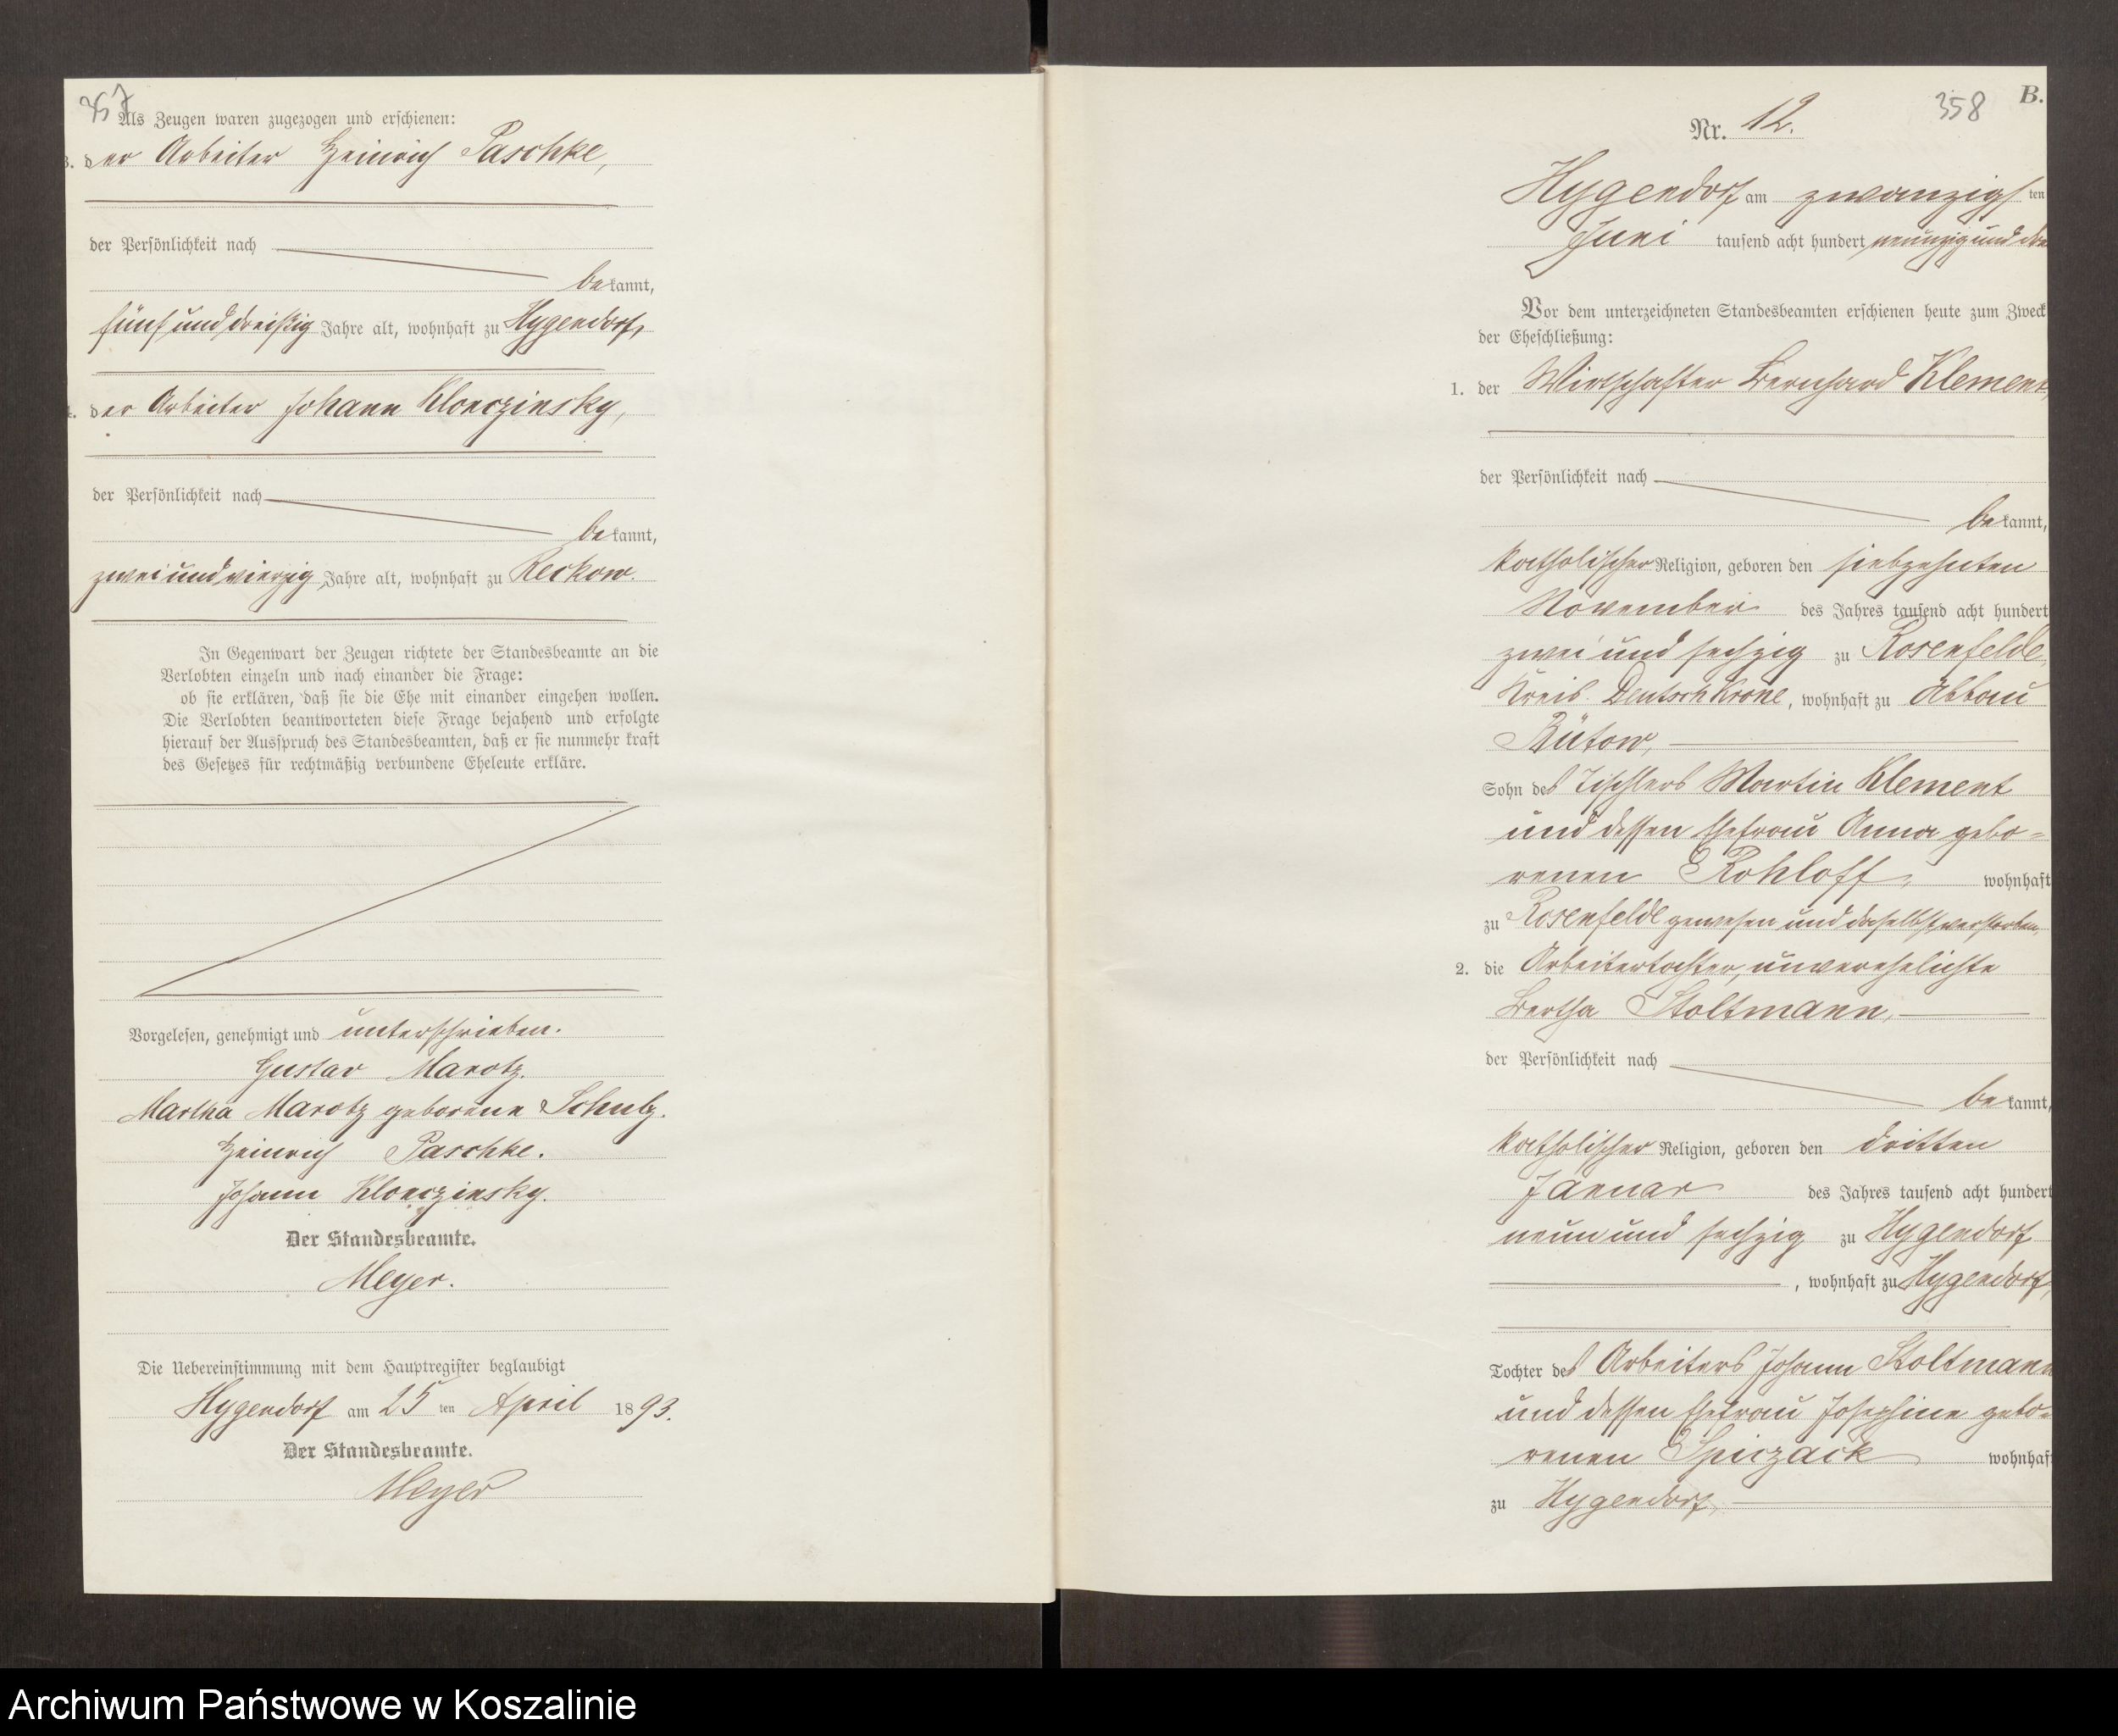 357
Als Zeugen waren zugezogen und erschienen:
3. der Arbeiter Heinrich Paschke,
der Persönlichkeit nach
bekannt,
fünf und dreißig Jahre alt, wohnhaft zu Hygendorf,
4. der Arbeiter Johann Klonczinsky,
der Persönlichkeit nach
bekannt,
zwei und vierzig Jahre alt, wohnhaft zu Reckow.
In Gegenwart der Zeugen richtete der Standesbeamte an die
Verlobten einzeln und nach einander die Frage:
ob sie erklären, daß sie die Ehe mit einander eingehen wollen.
Die Verlobten beantworteten diese Frage bejahend und erfolgte
hierauf der Ausspruch des Standesbeamten, daß er sie nunmehr kraft
des Gesetzes für rechtmäßig verbundene Eheleute erkläre.
Vorgelesen, genehmigt und unterschrieben.
Gustav Marotz.
Martha Marotz geborene Schulz.
Heinrich Paschke.
Johann Klonczinsky.
Der Standesbeamte.
Meyer.
Die Uebereinstimmung mit dem Hauptregister beglaubigt
Hygendorf am 25 ten April 1893.
Der Standesbeamte.
Meyer
358
B.
Nr. 12.
Hygendorf am zwanzigsten
Juni tausend acht hundert neunzig und drei
Vor dem unterzeichneten Standesbeamten erschienen heute zum Zweck
der Eheschließung:
1. der Wirtschafter Bernhard Klement,
der Persönlichkeit nach
bekannt,
katholischer Religion, geboren den siebzehnten
November des Jahres tausend acht hundert
zwei und sechzig zu Rosenfelde,
Kreis Deutsch Krone, wohnhaft zu Abbau
Bütow,
Sohn des Tischlers Martin Klement
und dessen Ehefrau Anna gebo=
renen Rohloff, wohnhaft
zu Rosenfelde gewesen und daselbst verstorben,
2. die Arbeitertochter, unverehelichte
Bertha Stoltmann,
der Persönlichkeit nach
bekannt,
katholischer Religion, geboren den dritten
Januar des Jahres tausend acht hundert
neun und sechzig zu Hygendorf
, wohnhaft zu Hygendorf,
Tochter des Arbeiters Johann Stoltmann
und dessen Ehefrau Josephine gebo=
renen Spiczack wohnhaft
zu Hygendorf,
Archiwum Państwowe w Koszalinie